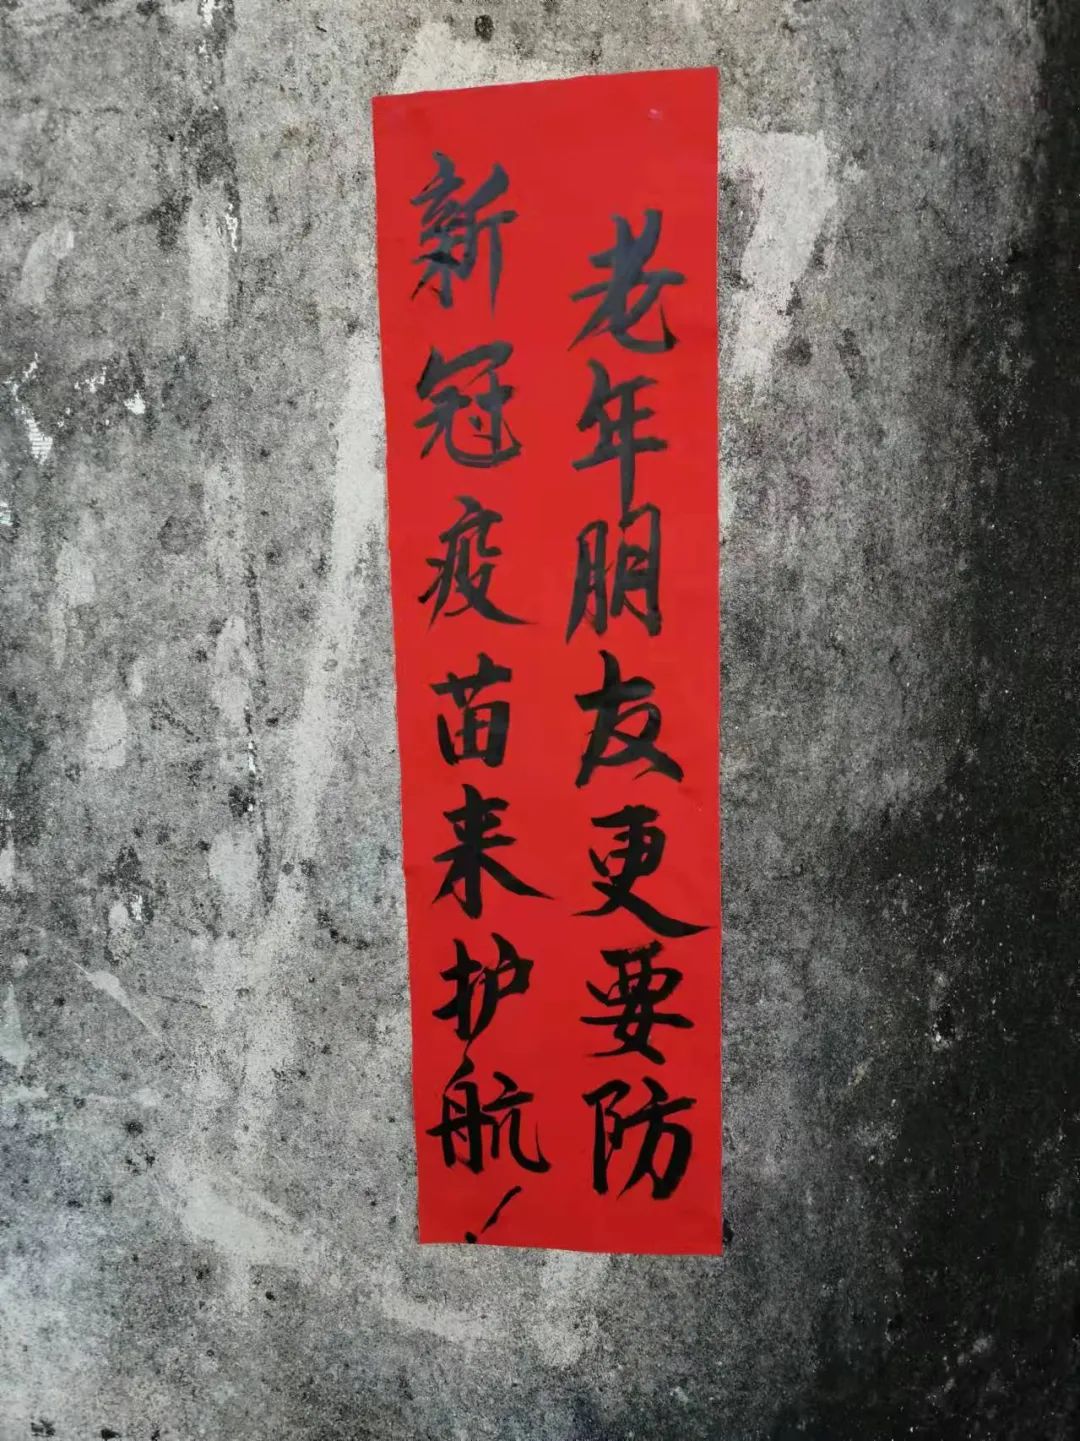 老年朋友更要防
新冠疫苗来护航！